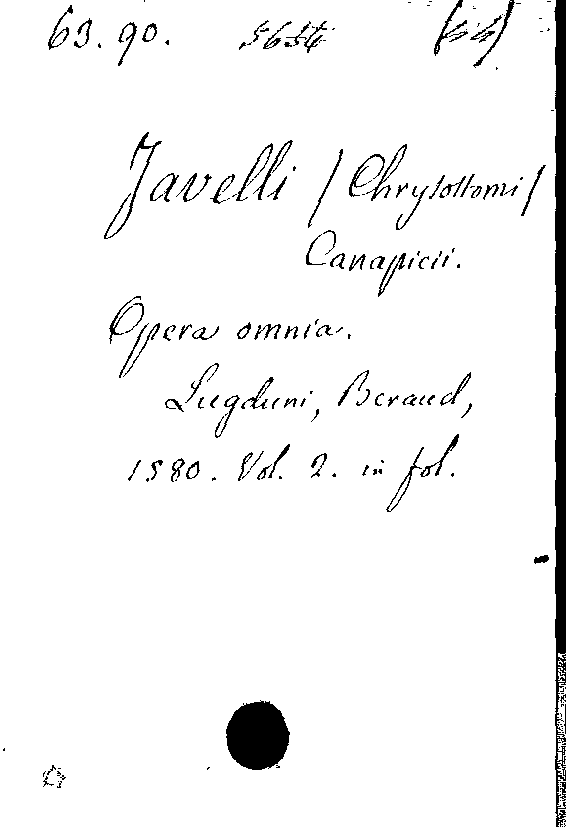 63. 90.
Javelli / Chrysostomi /
Canapicii.
Opera omnia.
Lugduni, Beraud,
1580. Vol. 2. in fol.